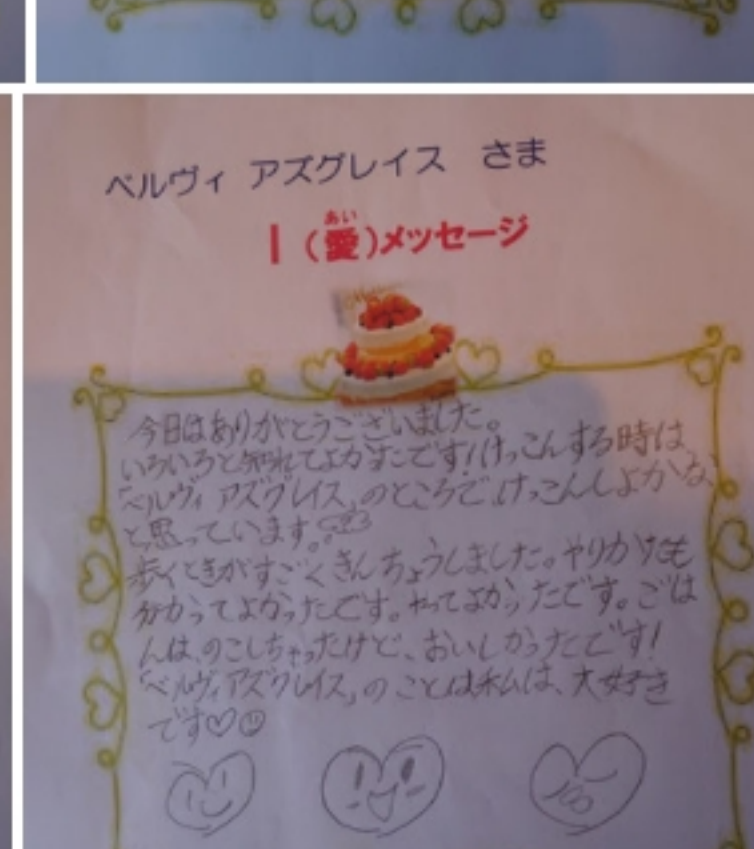 ベルヴィ アズグレイス さま
あい
I(愛)メッセージ
今日はありがとうございました。
いろいろと知れてよかたです!けっこんする時は
「ベルヴィ アズグレイス」のところでけっこんしよかな
と思っています。
歩くときがすごくきんちょうしました。やりかたも
分かってよかったです。やってよかったです。ごは
んは、のこしちゃったけど、おいしかったです!
「ベルヴィアズグレイス」のことは私は、大好き
です♡